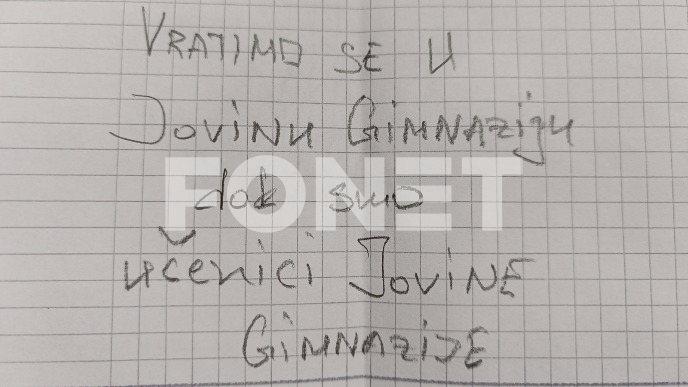 VRATIMO SE U
JOVINU GiMNAZiju
dok smo
FONET
učenici JOViNE
GiMNAZIJE